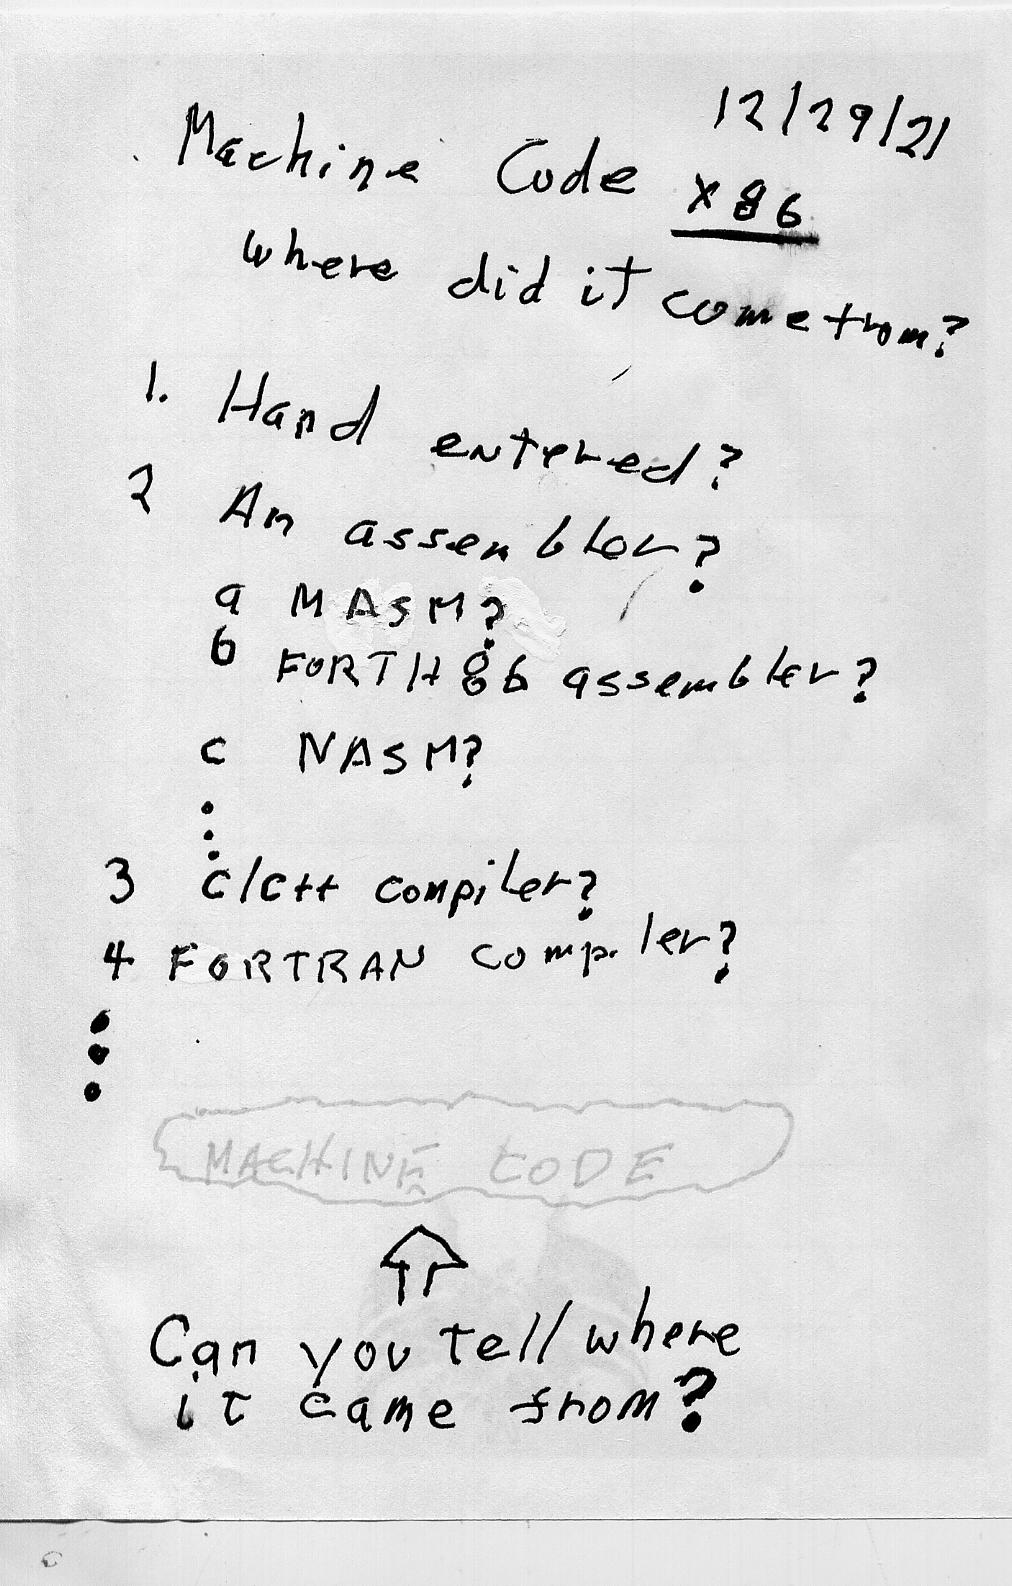 12/29/21
Machine Code x86
where did it come from?
1. Hand entered?
2 An assembler?
a MASM?
b FORTH86 assembler?
c NASM?
3 C/C++ compiler?
4 FORTRAN compiler?
MACHINE CODE
Can you tell where
it came from?